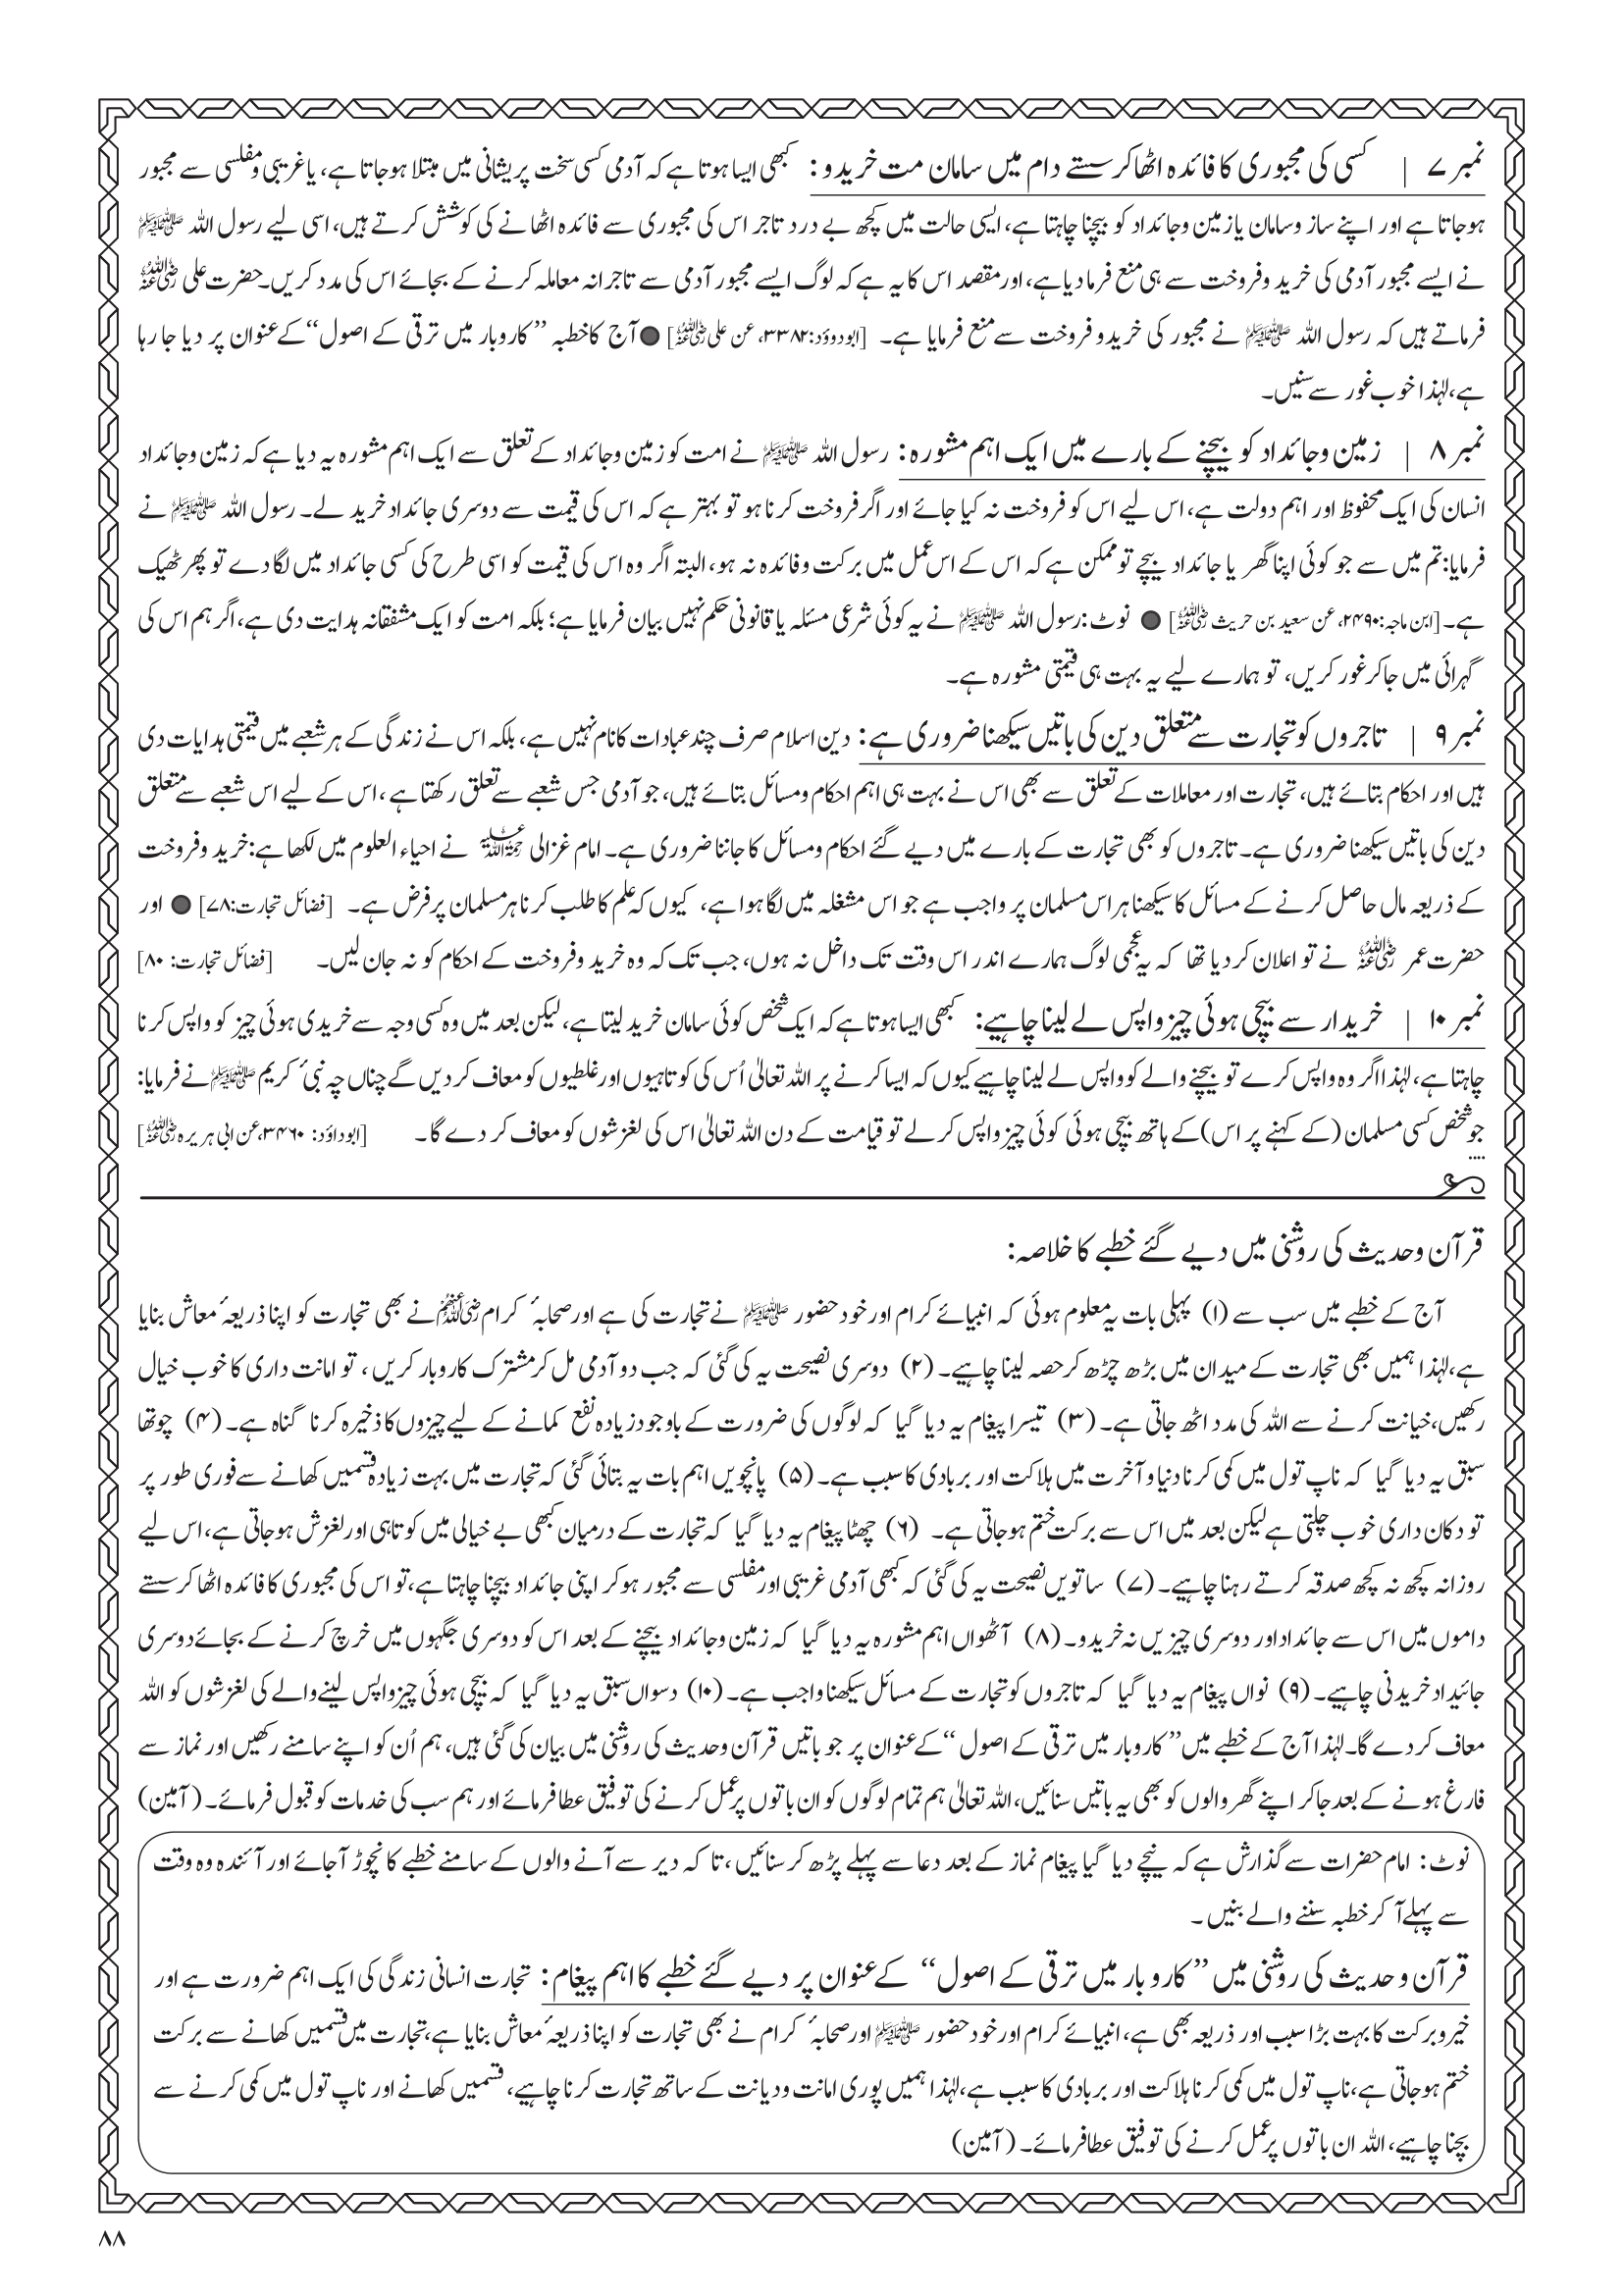 نمبر ۷ | کسی کی مجبوری کا فائدہ اٹھا کر سستے دام میں سامان مت خریدو: کبھی ایسا ہوتا ہے کہ آدمی کسی سخت پریشانی میں مبتلا ہو جاتا ہے، یا غریبی و مفلسی سے مجبور
ہو جاتا ہے اور اپنے ساز و سامان یا زمین و جائداد کو بیچنا چاہتا ہے، ایسی حالت میں کچھ بے درد تاجر اس کی مجبوری سے فائدہ اٹھانے کی کوشش کرتے ہیں، اسی لیے رسول اللہ ﷺ
نے ایسے مجبور آدمی کی خرید و فروخت سے ہی منع فرمادیا ہے، اور مقصد اس کا یہ ہے کہ لوگ ایسے مجبور آدمی سے تاجرانہ معاملہ کرنے کے بجائے اس کی مدد کریں۔ حضرت علی رضی اللہ عنہ
فرماتے ہیں کہ رسول اللہ ﷺ نے مجبور کی خرید و فروخت سے منع فرمایا ہے۔ [ابوداؤد: ۳۳۸۲، عن علی رضی اللہ عنہ] ● آج کا خطبہ ”کاروبار میں ترقی کے اصول“ کے عنوان پر دیا جا رہا
ہے، لہٰذا خوب غور سے سنیں۔
نمبر ۸ | زمین و جائداد کو بیچنے کے بارے میں ایک اہم مشورہ: رسول اللہ ﷺ نے امت کو زمین و جائداد کے تعلق سے ایک اہم مشورہ یہ دیا ہے کہ زمین و جائداد
انسان کی ایک محفوظ اور اہم دولت ہے، اس لیے اس کو فروخت نہ کیا جائے اور اگر فروخت کرنا ہو تو بہتر ہے کہ اس کی قیمت سے دوسری جائداد خرید لے۔ رسول اللہ ﷺ نے
فرمایا: تم میں سے جو کوئی اپنا گھر یا جائداد بیچے تو ممکن ہے کہ اس کے اس عمل میں برکت و فائدہ نہ ہو، البتہ اگر وہ اس کی قیمت کو اسی طرح کی کسی جائداد میں لگا دے تو پھر ٹھیک
ہے۔ [ابن ماجہ: ۲۴۹۰، عن سعید بن حریث رضی اللہ عنہ] ● نوٹ: رسول اللہ ﷺ نے یہ کوئی شرعی مسئلہ یا قانونی حکم نہیں بیان فرمایا ہے؛ بلکہ امت کو ایک مشفقانہ ہدایت دی ہے، اگر ہم اس کی
گہرائی میں جا کر غور کریں، تو ہمارے لیے یہ بہت ہی قیمتی مشورہ ہے۔
نمبر ۹ | تاجروں کو تجارت سے متعلق دین کی باتیں سیکھنا ضروری ہے: دین اسلام صرف چند عبادات کا نام نہیں ہے، بلکہ اس نے زندگی کے ہر شعبے میں قیمتی ہدایات دی
ہیں اور احکام بتائے ہیں، تجارت اور معاملات کے تعلق سے بھی اس نے بہت ہی اہم احکام و مسائل بتائے ہیں، جو آدمی جس شعبے سے تعلق رکھتا ہے، اس کے لیے اس شعبے سے متعلق
دین کی باتیں سیکھنا ضروری ہے۔ تاجروں کو بھی تجارت کے بارے میں دیے گئے احکام و مسائل کا جاننا ضروری ہے۔ امام غزالی رحمۃ اللہ علیہ نے احیاء العلوم میں لکھا ہے: خرید و فروخت
کے ذریعہ مال حاصل کرنے کے مسائل کا سیکھنا ہر اس مسلمان پر واجب ہے جو اس مشغلہ میں لگا ہوا ہے، کیوں کہ علم کا طلب کرنا ہر مسلمان پر فرض ہے۔ [فضائل تجارت: ۷۸] ● اور
حضرت عمر رضی اللہ عنہ نے تو اعلان کر دیا تھا کہ یہ عجمی لوگ ہمارے اندر اس وقت تک داخل نہ ہوں، جب تک کہ وہ خرید و فروخت کے احکام کو نہ جان لیں۔ [فضائل تجارت: ۸۰]
نمبر ۱۰ | خریدار سے بیچی ہوئی چیز واپس لے لینا چاہیے: کبھی ایسا ہوتا ہے کہ ایک شخص کوئی سامان خرید لیتا ہے، لیکن بعد میں وہ کسی وجہ سے خریدی ہوئی چیز کو واپس کرنا
چاہتا ہے، لہٰذا اگر وہ واپس کرے تو بیچنے والے کو واپس لے لینا چاہیے کیوں کہ ایسا کرنے پر اللہ تعالیٰ اُس کی کوتاہیوں اور غلطیوں کو معاف کر دیں گے چناں چہ نبیٔ کریم ﷺ نے فرمایا:
جو شخص کسی مسلمان (کے کہنے پر اس) کے ہاتھ بیچی ہوئی کوئی چیز واپس کرلے تو قیامت کے دن اللہ تعالیٰ اس کی لغزشوں کو معاف کر دے گا۔ [ابوداؤد: ۳۴۶۰، عن ابی ہریرہ رضی اللہ عنہ]
قرآن و حدیث کی روشنی میں دیے گئے خطبے کا خلاصہ:
آج کے خطبے میں سب سے (۱) پہلی بات یہ معلوم ہوئی کہ انبیائے کرام اور خود حضور ﷺ نے تجارت کی ہے اور صحابہٴ کرام رضی اللہ عنہم نے بھی تجارت کو اپنا ذریعہٴ معاش بنایا
ہے، لہٰذا ہمیں بھی تجارت کے میدان میں بڑھ چڑھ کر حصہ لینا چاہیے۔ (۲) دوسری نصیحت یہ کی گئی کہ جب دو آدمی مل کر مشترک کاروبار کریں، تو امانت داری کا خوب خیال
رکھیں، خیانت کرنے سے اللہ کی مدد اٹھ جاتی ہے۔ (۳) تیسرا پیغام یہ دیا گیا کہ لوگوں کی ضرورت کے باوجود زیادہ نفع کمانے کے لیے چیزوں کا ذخیرہ کرنا گناہ ہے۔ (۴) چوتھا
سبق یہ دیا گیا کہ ناپ تول میں کمی کرنا دنیا و آخرت میں ہلاکت اور بربادی کا سبب ہے۔ (۵) پانچویں اہم بات یہ بتائی گئی کہ تجارت میں بہت زیادہ قسمیں کھانے سے فوری طور پر
تو دکان داری خوب چلتی ہے لیکن بعد میں اس سے برکت ختم ہو جاتی ہے۔ (۶) چھٹا پیغام یہ دیا گیا کہ تجارت کے درمیان کبھی بے خیالی میں کوتاہی اور لغزش ہو جاتی ہے، اس لیے
روزانہ کچھ نہ کچھ صدقہ کرتے رہنا چاہیے۔ (۷) ساتویں نصیحت یہ کی گئی کہ کبھی آدمی غریبی اور مفلسی سے مجبور ہو کر اپنی جائداد بیچنا چاہتا ہے، تو اس کی مجبوری کا فائدہ اٹھا کر سستے
داموں میں اس سے جائداد اور دوسری چیزیں نہ خریدو۔ (۸) آٹھواں اہم مشورہ یہ دیا گیا کہ زمین و جائداد بیچنے کے بعد اس کو دوسری جگہوں میں خرچ کرنے کے بجائے دوسری
جائیداد خریدنی چاہیے۔ (۹) نواں پیغام یہ دیا گیا کہ تاجروں کو تجارت کے مسائل سیکھنا واجب ہے۔ (۱۰) دسواں سبق یہ دیا گیا کہ بیچی ہوئی چیز واپس لینے والے کی لغزشوں کو اللہ
معاف کر دے گا۔ لہٰذا آج کے خطبے میں ”کاروبار میں ترقی کے اصول“ کے عنوان پر جو باتیں قرآن و حدیث کی روشنی میں بیان کی گئی ہیں، ہم اُن کو اپنے سامنے رکھیں اور نماز سے
فارغ ہونے کے بعد جا کر اپنے گھر والوں کو بھی یہ باتیں سنائیں، اللہ تعالیٰ ہم تمام لوگوں کو ان باتوں پر عمل کرنے کی توفیق عطا فرمائے اور ہم سب کی خدمات کو قبول فرمائے۔ (آمین)
نوٹ: امام حضرات سے گذارش ہے کہ نیچے دیا گیا پیغام نماز کے بعد دعا سے پہلے پڑھ کر سنائیں، تا کہ دیر سے آنے والوں کے سامنے خطبے کا نچوڑ آ جائے اور آئندہ وہ وقت
سے پہلے آ کر خطبہ سننے والے بنیں۔
قرآن و حدیث کی روشنی میں ”کاروبار میں ترقی کے اصول“ کے عنوان پر دیے گئے خطبے کا اہم پیغام: تجارت انسانی زندگی کی ایک اہم ضرورت ہے اور
خیر و برکت کا بہت بڑا سبب اور ذریعہ بھی ہے، انبیائے کرام اور خود حضور ﷺ اور صحابہٴ کرام نے بھی تجارت کو اپنا ذریعہٴ معاش بنایا ہے، تجارت میں قسمیں کھانے سے برکت
ختم ہو جاتی ہے، ناپ تول میں کمی کرنا ہلاکت اور بربادی کا سبب ہے، لہٰذا ہمیں پوری امانت و دیانت کے ساتھ تجارت کرنا چاہیے، قسمیں کھانے اور ناپ تول میں کمی کرنے سے
بچنا چاہیے، اللہ ان باتوں پر عمل کرنے کی توفیق عطا فرمائے۔ (آمین)
۸۸